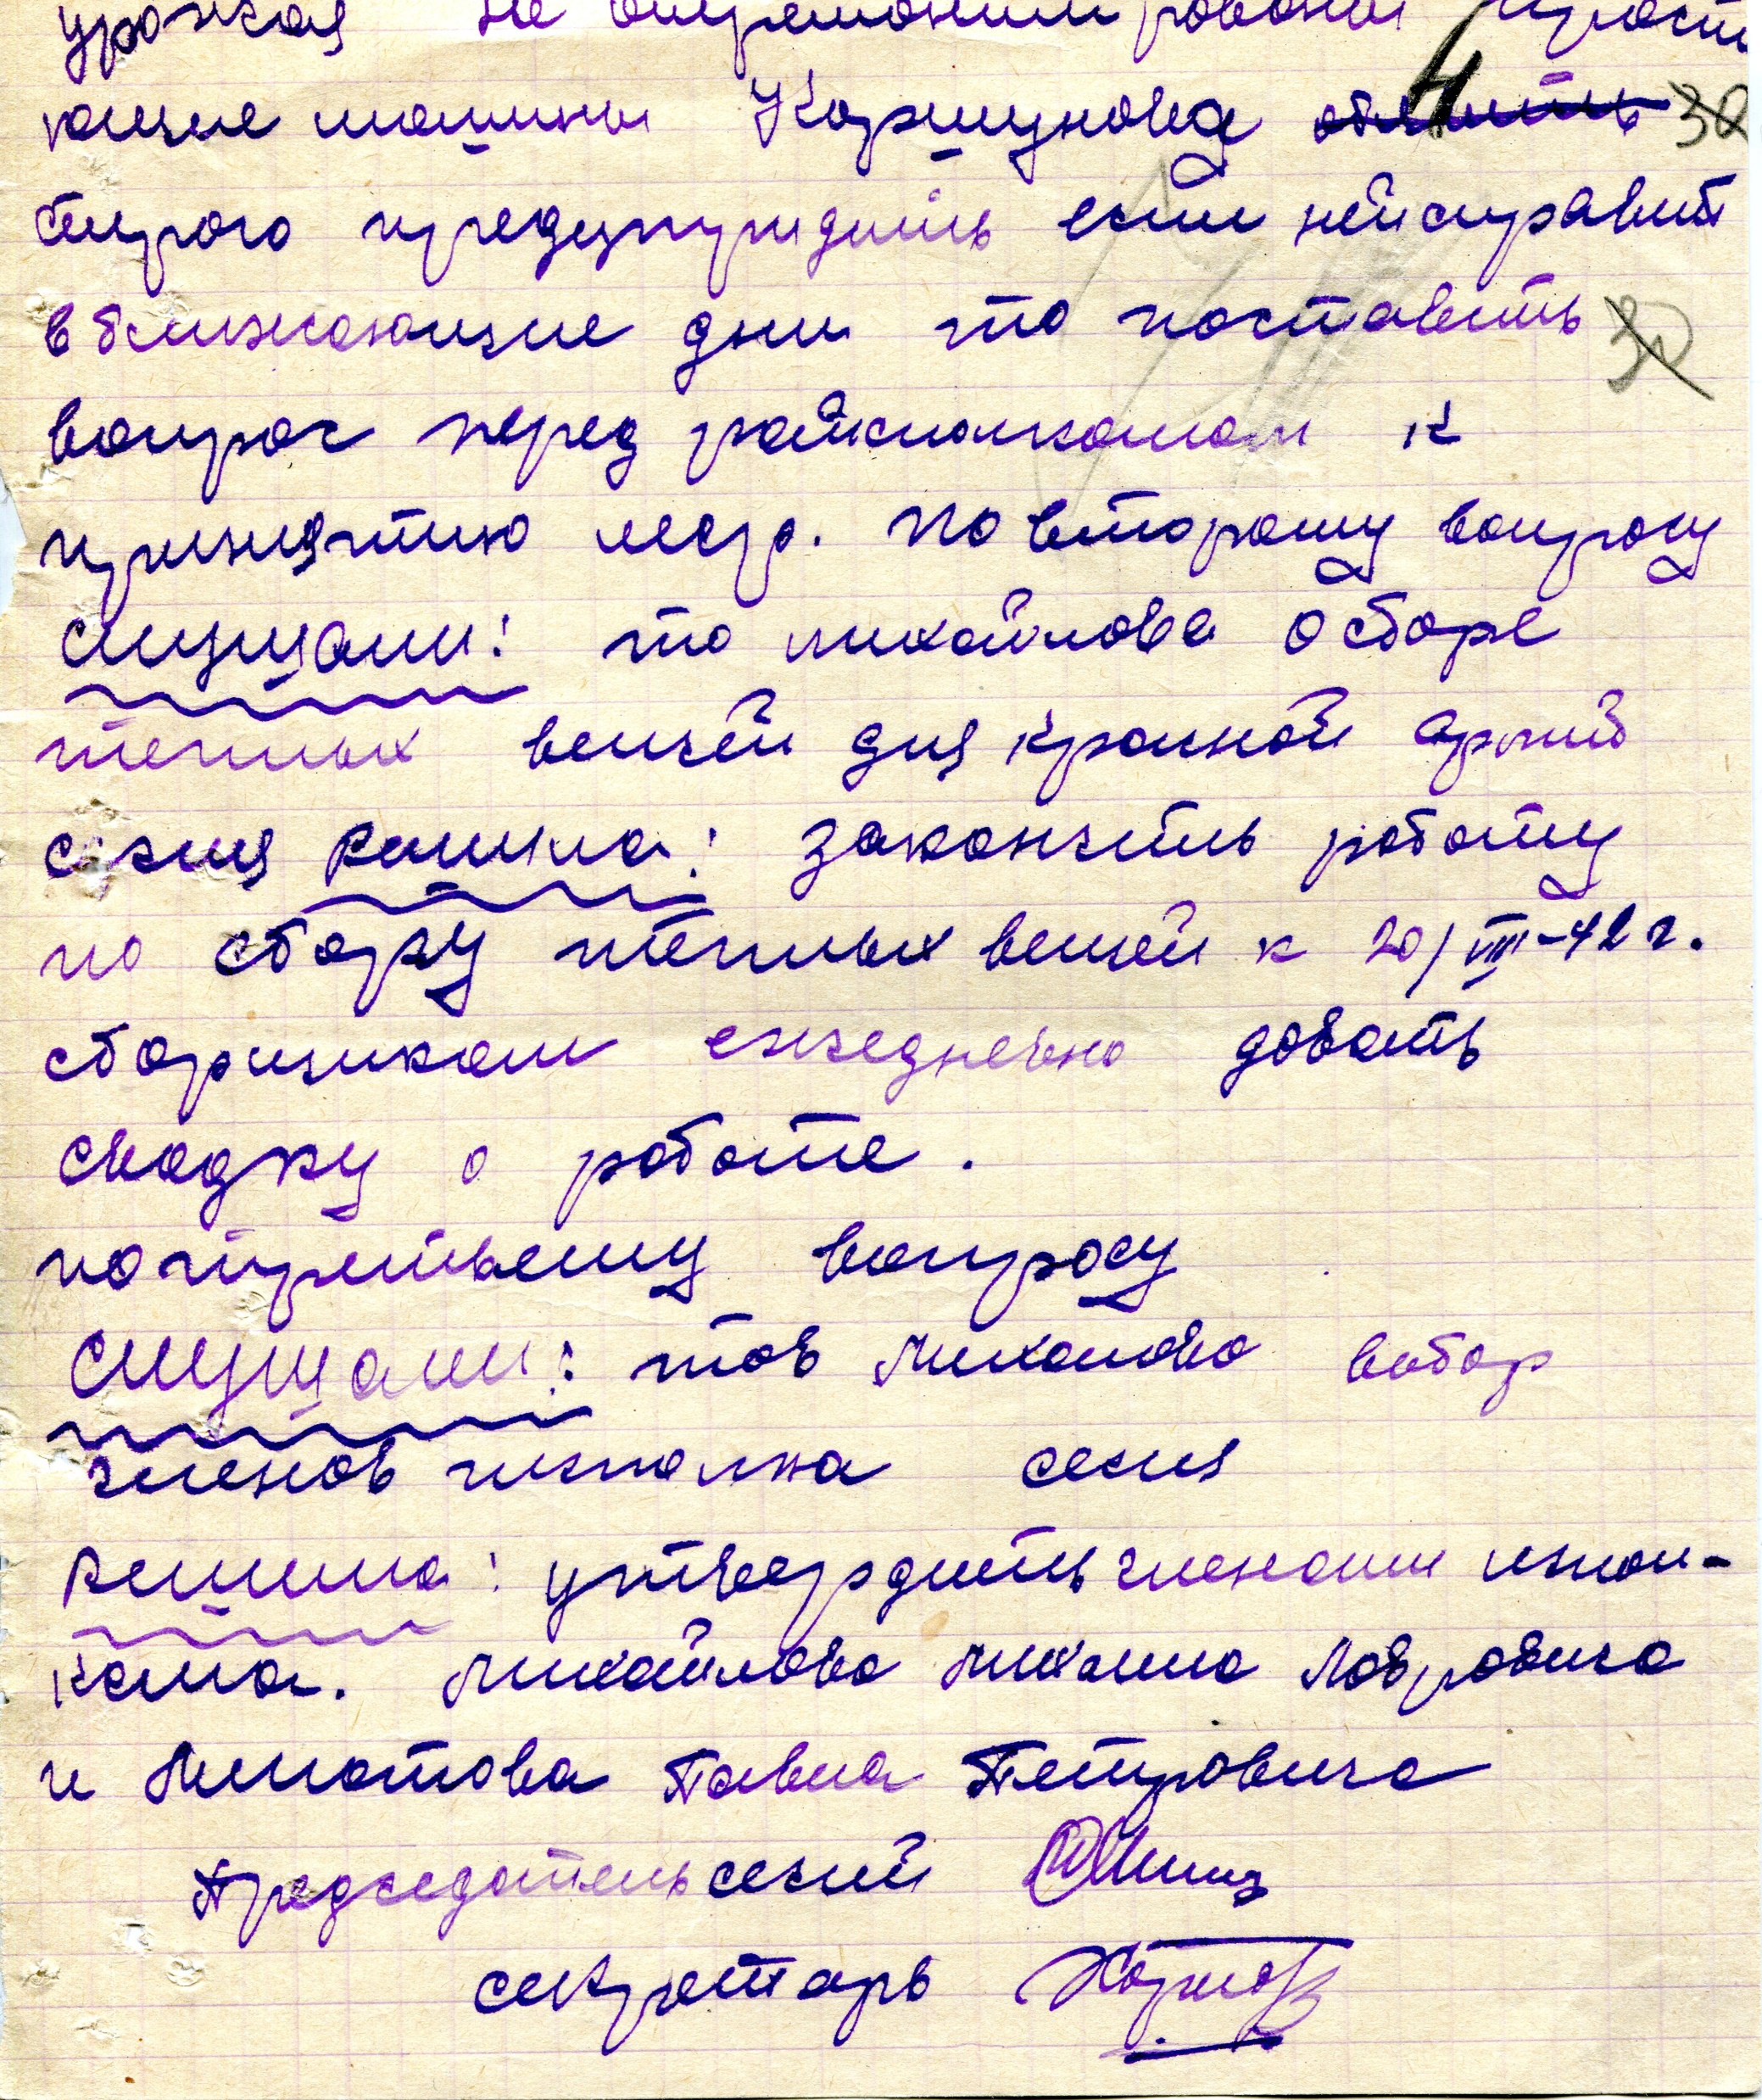 урожая не отремонтированы прост
ющие машины Коршунова 4 30
строго предупридить если неисправит
в ближающие дни то поставить 32
вопрос перед райсполкомом к
принятию мер. По второму вопросу
слушали: то михайлова о сборе
теплых вещей для красной армий
сезия Решила: закончить работу
по сбору теплых вещей к 20/VIII-42 г.
сборщикам ежедневно довать
сводку о работе.
по третьему вопросу
слушали: тов михалова выбор
членов исполка сесия
Решила: утвердить членами испол-
кома. Михайлова михаила Лавровича
и Филатова Павла Петровича
Председатель сезий
секретарь